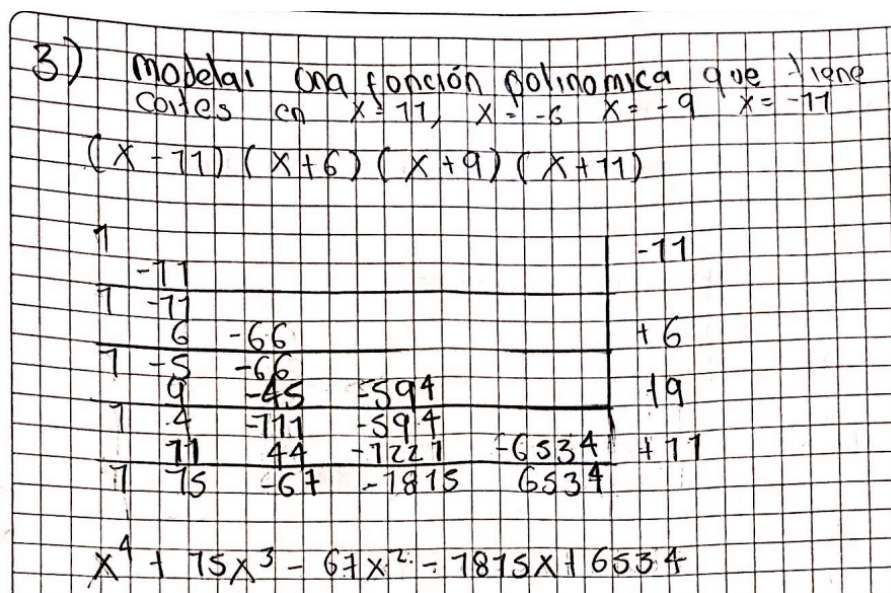 3) Modelar una función polinomica que tiene
cortes en x=11, x=-6 x=-9 x=-11
(x-11)(x+6)(x+9)(x+11)
1 -11
-11
1 -11
6 -66 +6
1 -5 -66
9 -45 -594 +9
1 4 -111 -594
11 44 -1221 -6534 +11
1 15 -67 -1815 6534
x⁴ + 15x³ - 67x² - 1815x + 6534